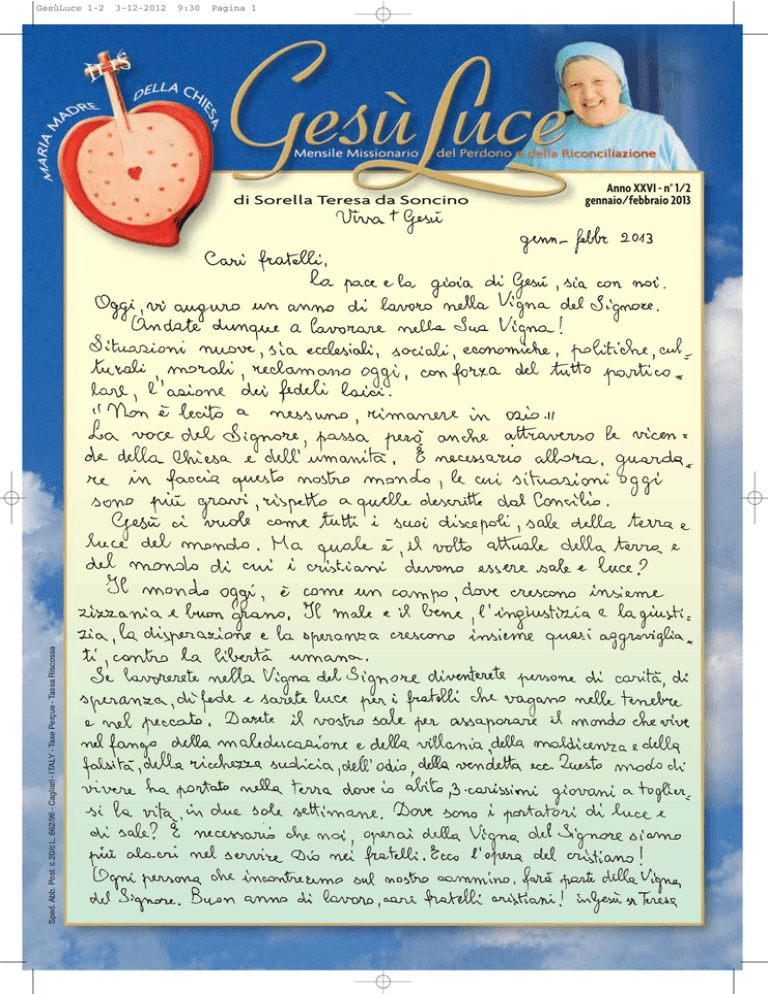 GesùLuce 1-2 3-12-2012 9:30 Pagina 1
ITIS
MARIA MADRE DELLA CHIESA
GesùLuce
Mensile Missionario del Perdono e della Riconciliazione
di Sorella Teresa da Soncino
Anno XXVI - n° 1/2
gennaio/febbraio 2013
Viva † Gesù
genn- febbr 2013
Cari fratelli,
la pace e la gioia di Gesù, sia con noi.
Oggi, vi auguro un anno di lavoro nella Vigna del Signore.
Andate dunque a lavorare nella Sua Vigna!
Situazioni nuove, sia ecclesiali, sociali, economiche, politiche, cul=
turali, morali, reclamano oggi, con forza del tutto partico=
lare, l'azione dei fedeli laici.
"Non è lecito a nessuno, rimanere in ozio."
La voce del Signore, passa però anche attraverso le vicen=
de della Chiesa e dell'umanità. È necessario allora, guarda=
re in faccia questo nostro mondo, le cui situazioni oggi
sono più gravi, rispetto a quelle descritte dal Concilio.
Gesù ci vuole come tutti i suoi discepoli, sale della terra e
luce del mondo. Ma quale è, il volto attuale della terra e
del mondo di cui i cristiani devono essere sale e luce?
Il mondo oggi, è come un campo, dove crescono insieme
zizzania e buon grano. Il male e il bene, l'ingiustizia e la giusti=
zia, la disperazione e la speranza crescono insieme quasi aggroviglia=
ti, contro la libertà umana.
Se lavorerete nella Vigna del Signore diventerete persone di carità, di
speranza, di fede e sarete luce per i fratelli che vagano nelle tenebre
e nel peccato. Darete il vostro sale per assaporare il mondo che vive
nel fango della maleducazione e della villania, della maldicenza e della
falsità, della ricchezza sudicia, dell'odio, della vendetta ecc. Questo modo di
vivere ha portato nella terra dove io abito, 3 carissimi giovani a toglier=
si la vita, in due sole settimane. Dove sono i portatori di luce e
di sale? È necessario che noi, operai della Vigna del Signore siamo
più alacri nel servire Dio nei fratelli. Ecco l'opera del cristiano!
Ogni persona che incontreremo sul nostro cammino, farà parte della Vigna
del Signore. Buon anno di lavoro, cari fratelli cristiani! in Gesù sr Teresa
Sped. Abb. Post. c.20/c L. 662/96 - Cagliari - ITALY - Taxe Perçue - Tassa Riscossa